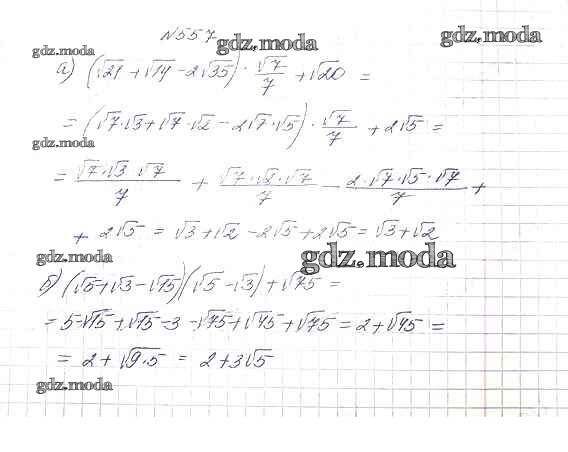 №557
gdz.moda
gdz.moda
gdz.moda
а) (√21 + √14 - 2√35) · √7/7 + √20 =
= (√7·√3 + √7·√2 - 2√7·√5) · √7/7 + 2√5 =
gdz.moda
= √7·√3·√7/7 + √7·√2·√7/7 - 2·√7·√5·√7/7 +
+ 2√5 = √3 + √2 - 2√5 + 2√5 = √3 + √2
gdz.moda
gdz.moda
б) (√5 + √3 - √15)(√5 - √3) + √75 =
= 5 - √15 + √15 - 3 - √75 + √45 + √75 = 2 + √45 =
= 2 + √9·5 = 2 + 3√5
gdz.moda